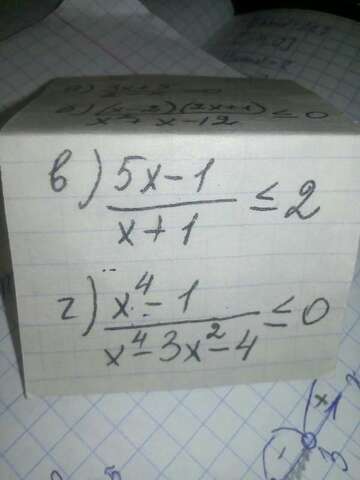 б) (x-2)(2x+1) / x²+x-12 ≤ 0
в) 5x-1 / x+1 ≤ 2
г) x⁴-1 / x⁴-3x²-4 ≤ 0
+
-
3